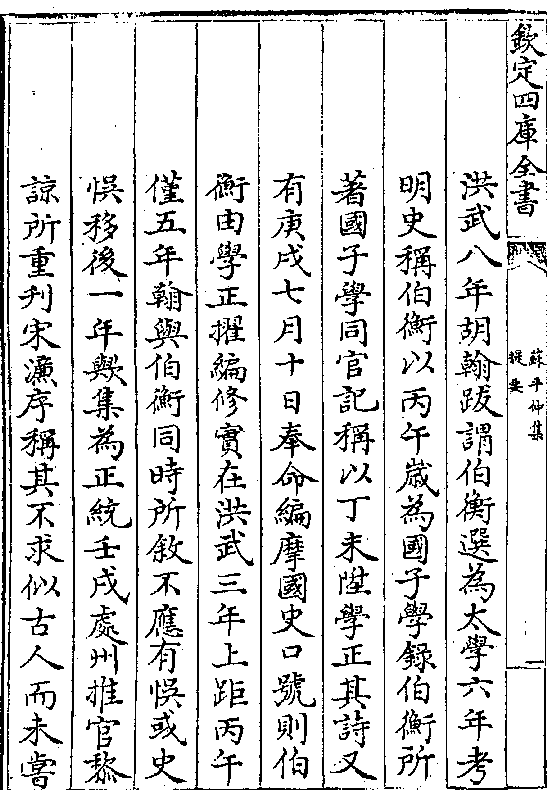 欽定四庫全書
蘇平仲集
提要
一
洪武八年胡翰跋謂伯衡選為太學六年考
明史稱伯衡以丙午嵗為國子學錄伯衡所
著國子學同官記稱以丁未陞學正其詩又
有庚戌七月十日奉命編摩國史口號則伯
衡由學正擢編修實在洪武三年上距丙午
僅五年翰與伯衡同時所敘不應有悞或史
悞移後一年歟集為正統壬戌處州推官黎
諒所重刋宋濓序稱其不求似古人而未嘗